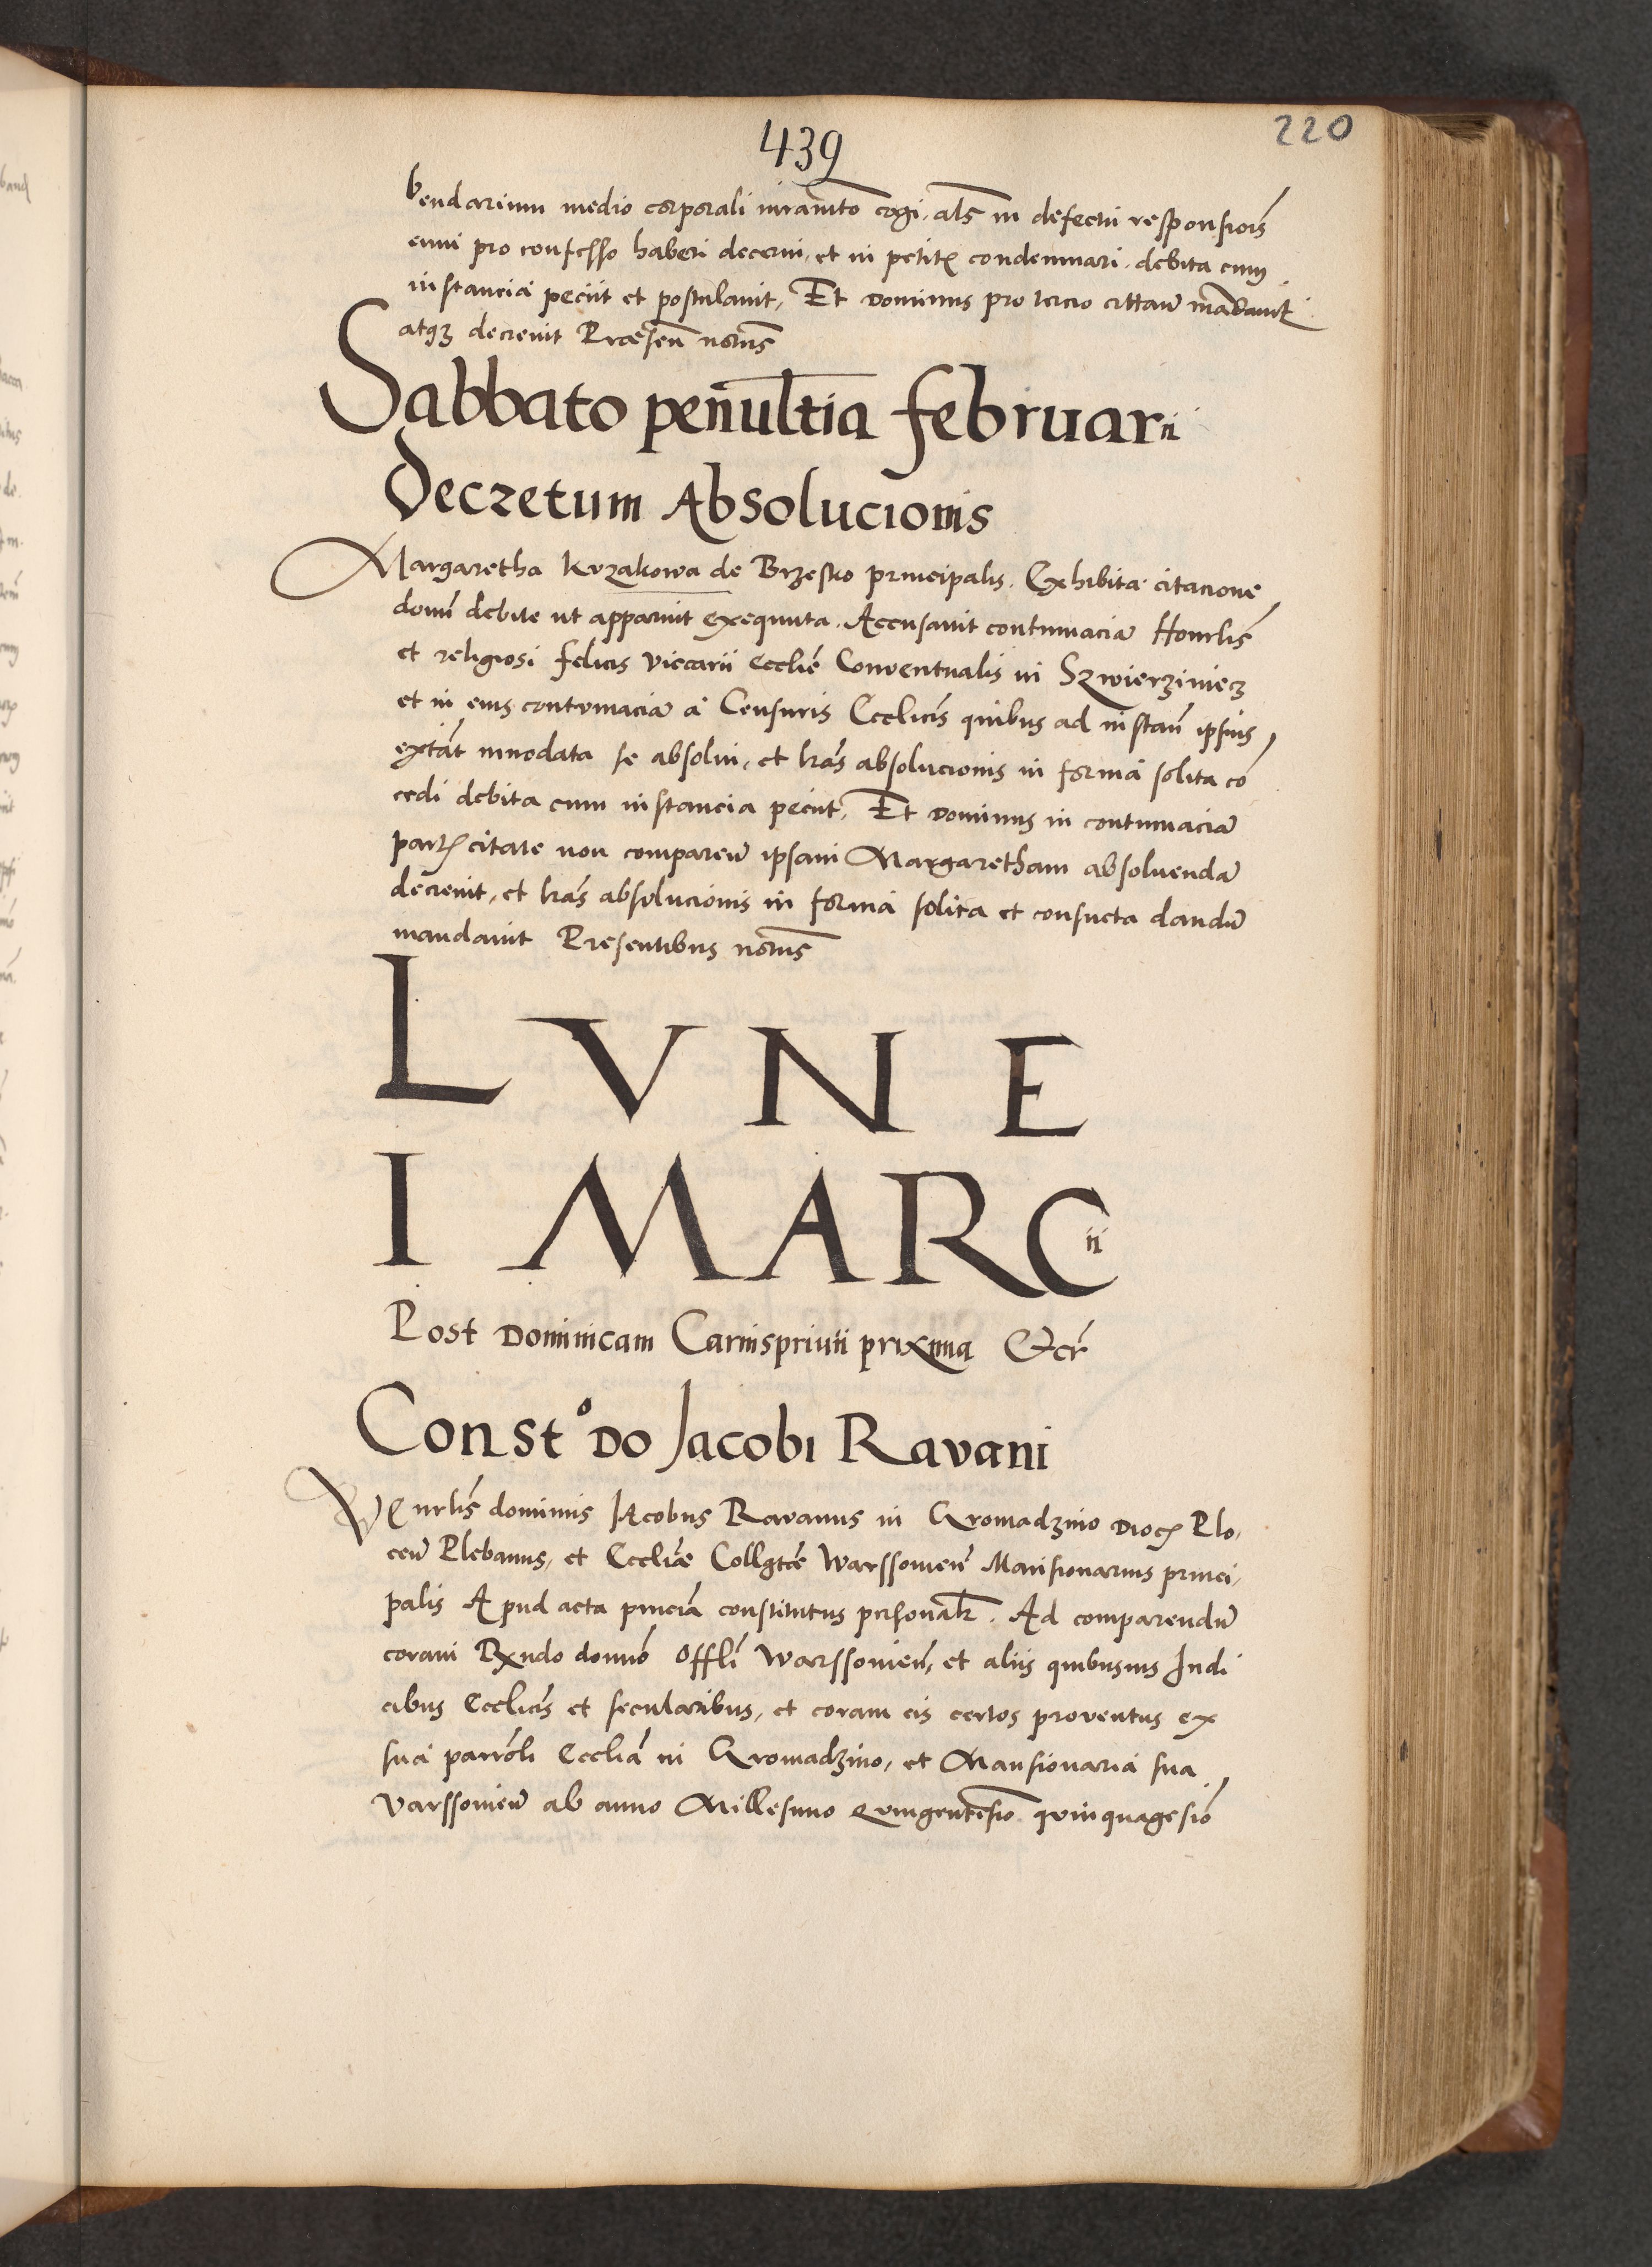 439
220
bendarium medio corporali iuramto cogi, als in defectu responsiois
eum pro confesso haberi decerni, et in petitis condemnari, debita cum
instancia peciit et postulavit, Et Dominus pro tercio cittan mandavit
atqz decrevit Præsen notus
Sabbato penultia februarii
Decretum Absolucionis
Margaretha Kuzakowa de Brzesko principalis, Exhibita citacione
domi debite ut apparuit exequuta, Accusavit contumacia Honrlis
et religiosi felicis viccarii Ecclie Conventualis in Szwierziniecz
et in eius contumacia a Censuris Ecclicis quibus ad instan ipsius
extat innodata se absolvi, et lras absolucionis in forma solita co
cedi debita cum instancia peciit, Et Dominus in contumacia
partis citate non comparen ipsam Margaretham absolvenda
decrevit, et lras absolucionis in forma solita et consueta dandu
mandavit Presentibus notus
LVNE
I MARCii
Post Dominicam Carnisprivii prixma Etcr
Consto Do Jacobi Ravani
Venrlis dominus Jacobus Ravanus in Gromadzino Dioc Plo,
cen Plebanus, et Eccliæ Collgtæ Warssovien Mansionarius princi,
palis Apud acta princia constitutus personalr. Ad comparendu
coram Rxndo domno Offli Warssovien, et aliis quibusvis Judi
cibus Ecclicis et secularibus, et coram eis certos proventus ex
sua parroli Ecclia in Gromadzino, et Mansionaria sua
Varssovien ab anno Millesimo Quingentesio quinquagesio